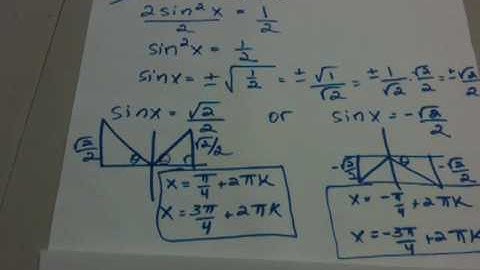 2sin²x/2 = 1/2
sin²x = 1/2
sinx = ±√(1/2) = ±√1/√2 = ±1/√2 · √2/√2 = ±√2/2
sinx = √2/2 or sinx = -√2/2
√2/2 θ θ √2/2 -√2/2 θ -√2/2
x = π/4 + 2πK
x = 3π/4 + 2πK
x = -π/4 + 2πK
x = -3π/4 + 2πK